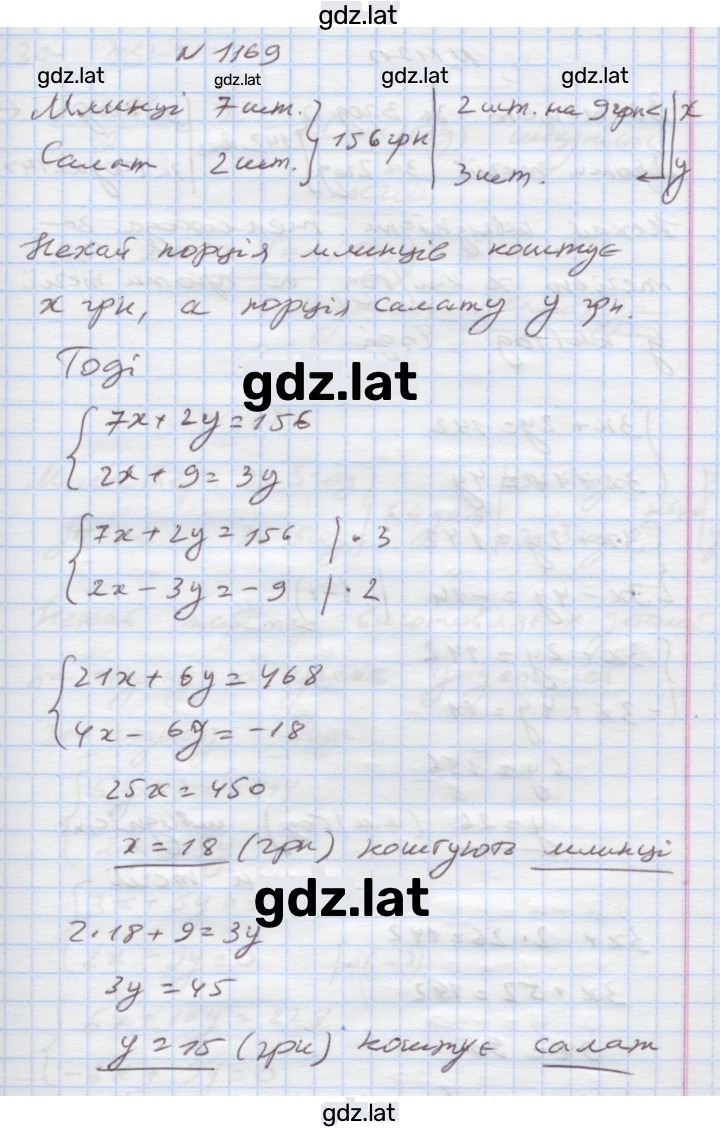 gdz.lat
N 1169
gdz.lat gdz.lat gdz.lat gdz.lat
Млинці 7 шт. } 156 грн | 2 шт. на 9 грн < | x
Салат 2 шт. 3 шт. y
Нехай порція млинців коштує
x грн, а порція салату y грн.
Тоді
gdz.lat
{ 7x + 2y = 156
2x + 9 = 3y
{ 7x + 2y = 156 | · 3
2x - 3y = -9 | · 2
{ 21x + 6y = 468
4x - 6y = -18
25x = 450
x = 18 (грн) коштують млинці
gdz.lat
2 · 18 + 9 = 3y
3y = 45
y = 15 (грн) коштує салат
gdz.lat